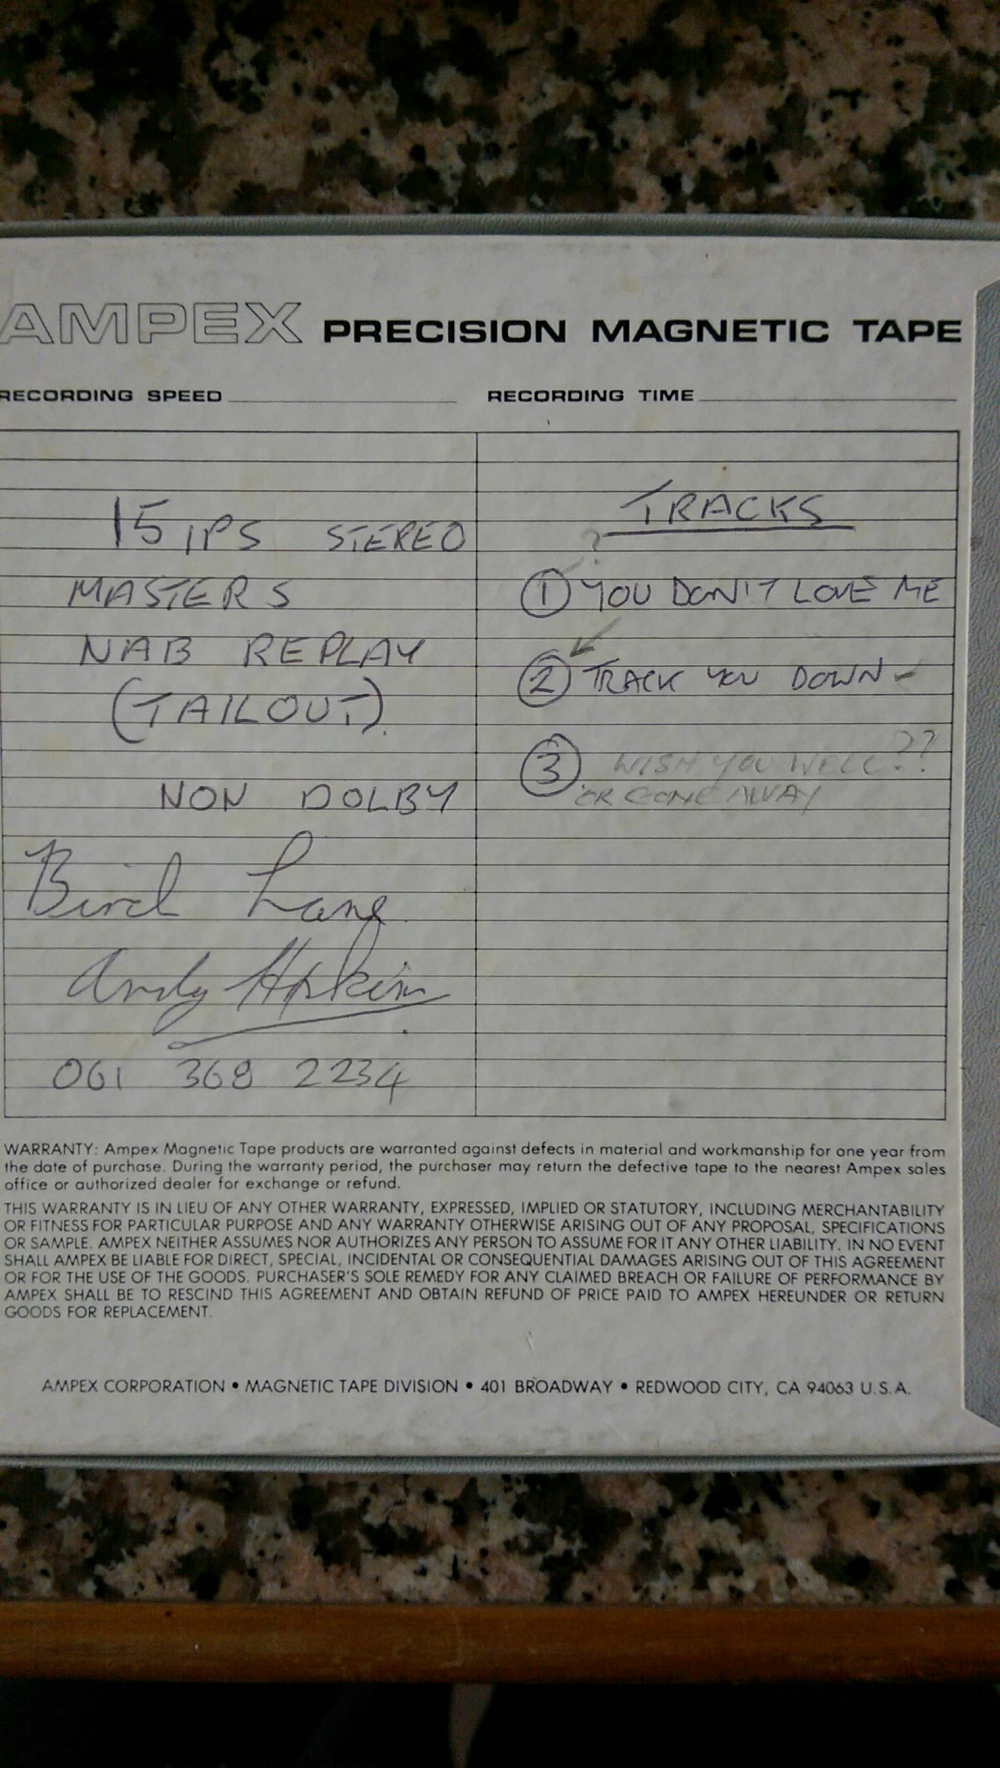 AMPEX PRECISION MAGNETIC TAPE
RECORDING SPEED
RECORDING TIME
15 IPS STEREO
MASTERS
NAB REPLAY
(TAILOUT).
NON DOLBY
Birch Lane
Andy Hoskin
061 368 2234
TRACKS
?
① YOU DON'T LOVE ME
② TRACK YOU DOWN
③ WISH YOU WELL??
OR GONE AWAY
WARRANTY: Ampex Magnetic Tape products are warranted against defects in material and workmanship for one year from
the date of purchase. During the warranty period, the purchaser may return the defective tape to the nearest Ampex sales
office or authorized dealer for exchange or refund.
THIS WARRANTY IS IN LIEU OF ANY OTHER WARRANTY, EXPRESSED, IMPLIED OR STATUTORY, INCLUDING MERCHANTABILITY
OR FITNESS FOR PARTICULAR PURPOSE AND ANY WARRANTY OTHERWISE ARISING OUT OF ANY PROPOSAL, SPECIFICATIONS
OR SAMPLE. AMPEX NEITHER ASSUMES NOR AUTHORIZES ANY PERSON TO ASSUME FOR IT ANY OTHER LIABILITY. IN NO EVENT
SHALL AMPEX BE LIABLE FOR DIRECT, SPECIAL, INCIDENTAL OR CONSEQUENTIAL DAMAGES ARISING OUT OF THIS AGREEMENT
OR FOR THE USE OF THE GOODS. PURCHASER'S SOLE REMEDY FOR ANY CLAIMED BREACH OR FAILURE OF PERFORMANCE BY
AMPEX SHALL BE TO RESCIND THIS AGREEMENT AND OBTAIN REFUND OF PRICE PAID TO AMPEX HEREUNDER OR RETURN
GOODS FOR REPLACEMENT.
AMPEX CORPORATION • MAGNETIC TAPE DIVISION • 401 BROADWAY • REDWOOD CITY, CA 94063 U.S.A.